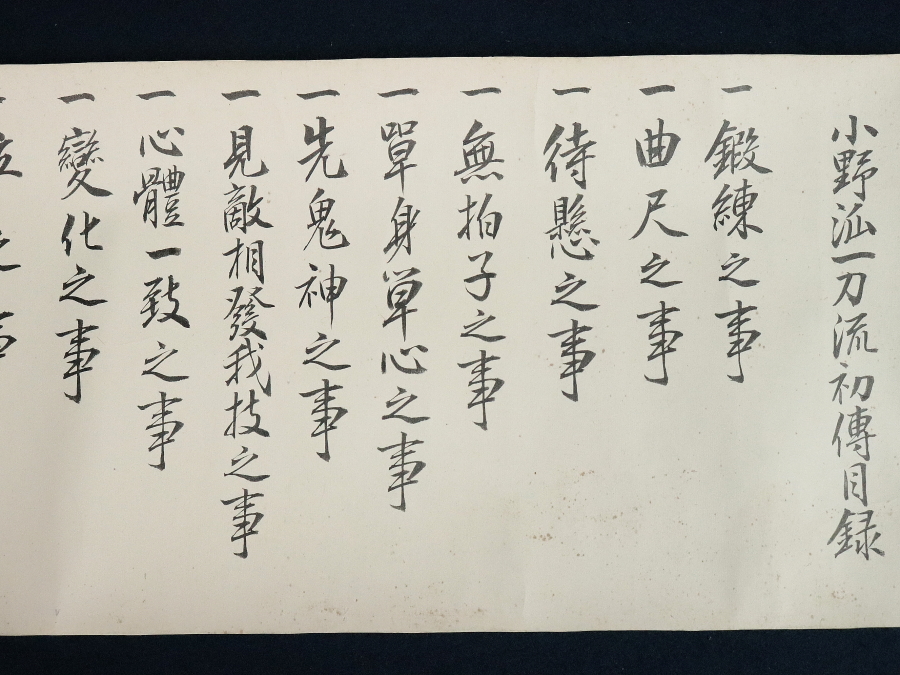 小野派一刀流初傳目録
一 鍛練之事
一 曲尺之事
一 待懸之事
一 無拍子之事
一 單身單心之事
一 先鬼神之事
一 見敵相發我技之事
一 心體一致之事
一 變化之事